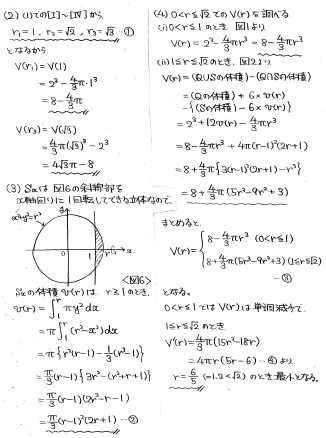 (2) (1)での[I]～[IV]から、
r₁=1, r₂=√2, r₃=√3 …①
となるから
V(r₁)=V(1)
=2³-4/3π・1³
=8-4/3π
V(r₃)=V(√3)
=4/3π(√3)³-2³
=4√3π-8
(3) Sxは図6の斜線部を
x軸回りに1回転してできる立体なので、
x²+y²=r²
1
r
x
<図6>
Sxの体積v(r)は、r≧1のとき、
v(r)=∫₁ʳ πy²dx
=π∫₁ʳ(r²-x²)dx
=π{r²(r-1)-1/3(r³-1)}
=π/3(r-1){3r²-(r²+r+1)}
=π/3(r-1)(2r²-r-1)
=π/3(r-1)²(2r+1) …②
(4) 0<r≦√2でのV(r)を調べる
(i) 0<r≦1のとき、図1より
V(r)=2³-4/3πr³=8-4/3πr³
(ii) 1≦r≦√2のとき、図2より
V(r)=(Q∪Sの体積)-(Q∩Sの体積)
=(Qの体積)+6×v(r)
-{(Sの体積)-6×v(r)}
=2³+12v(r)-4/3πr³
=8-4/3πr³+4π(r-1)²(2r+1)
=8+4/3π{3(r-1)²(2r+1)-r³}
=8+4/3π(5r³-9r²+3)
まとめると、
V(r)={8-4/3πr³ (0<r≦1)
8+4/3π(5r³-9r²+3) (1≦r≦√2)
…③
となる。
0<r≦1ではV(r)は単調減少で、
1≦r≦√2のとき
V'(r)=4/3π(15r²-18r)
=4πr(5r-6) …④より
r=6/5 (=1.2<√2)のとき最小となる。